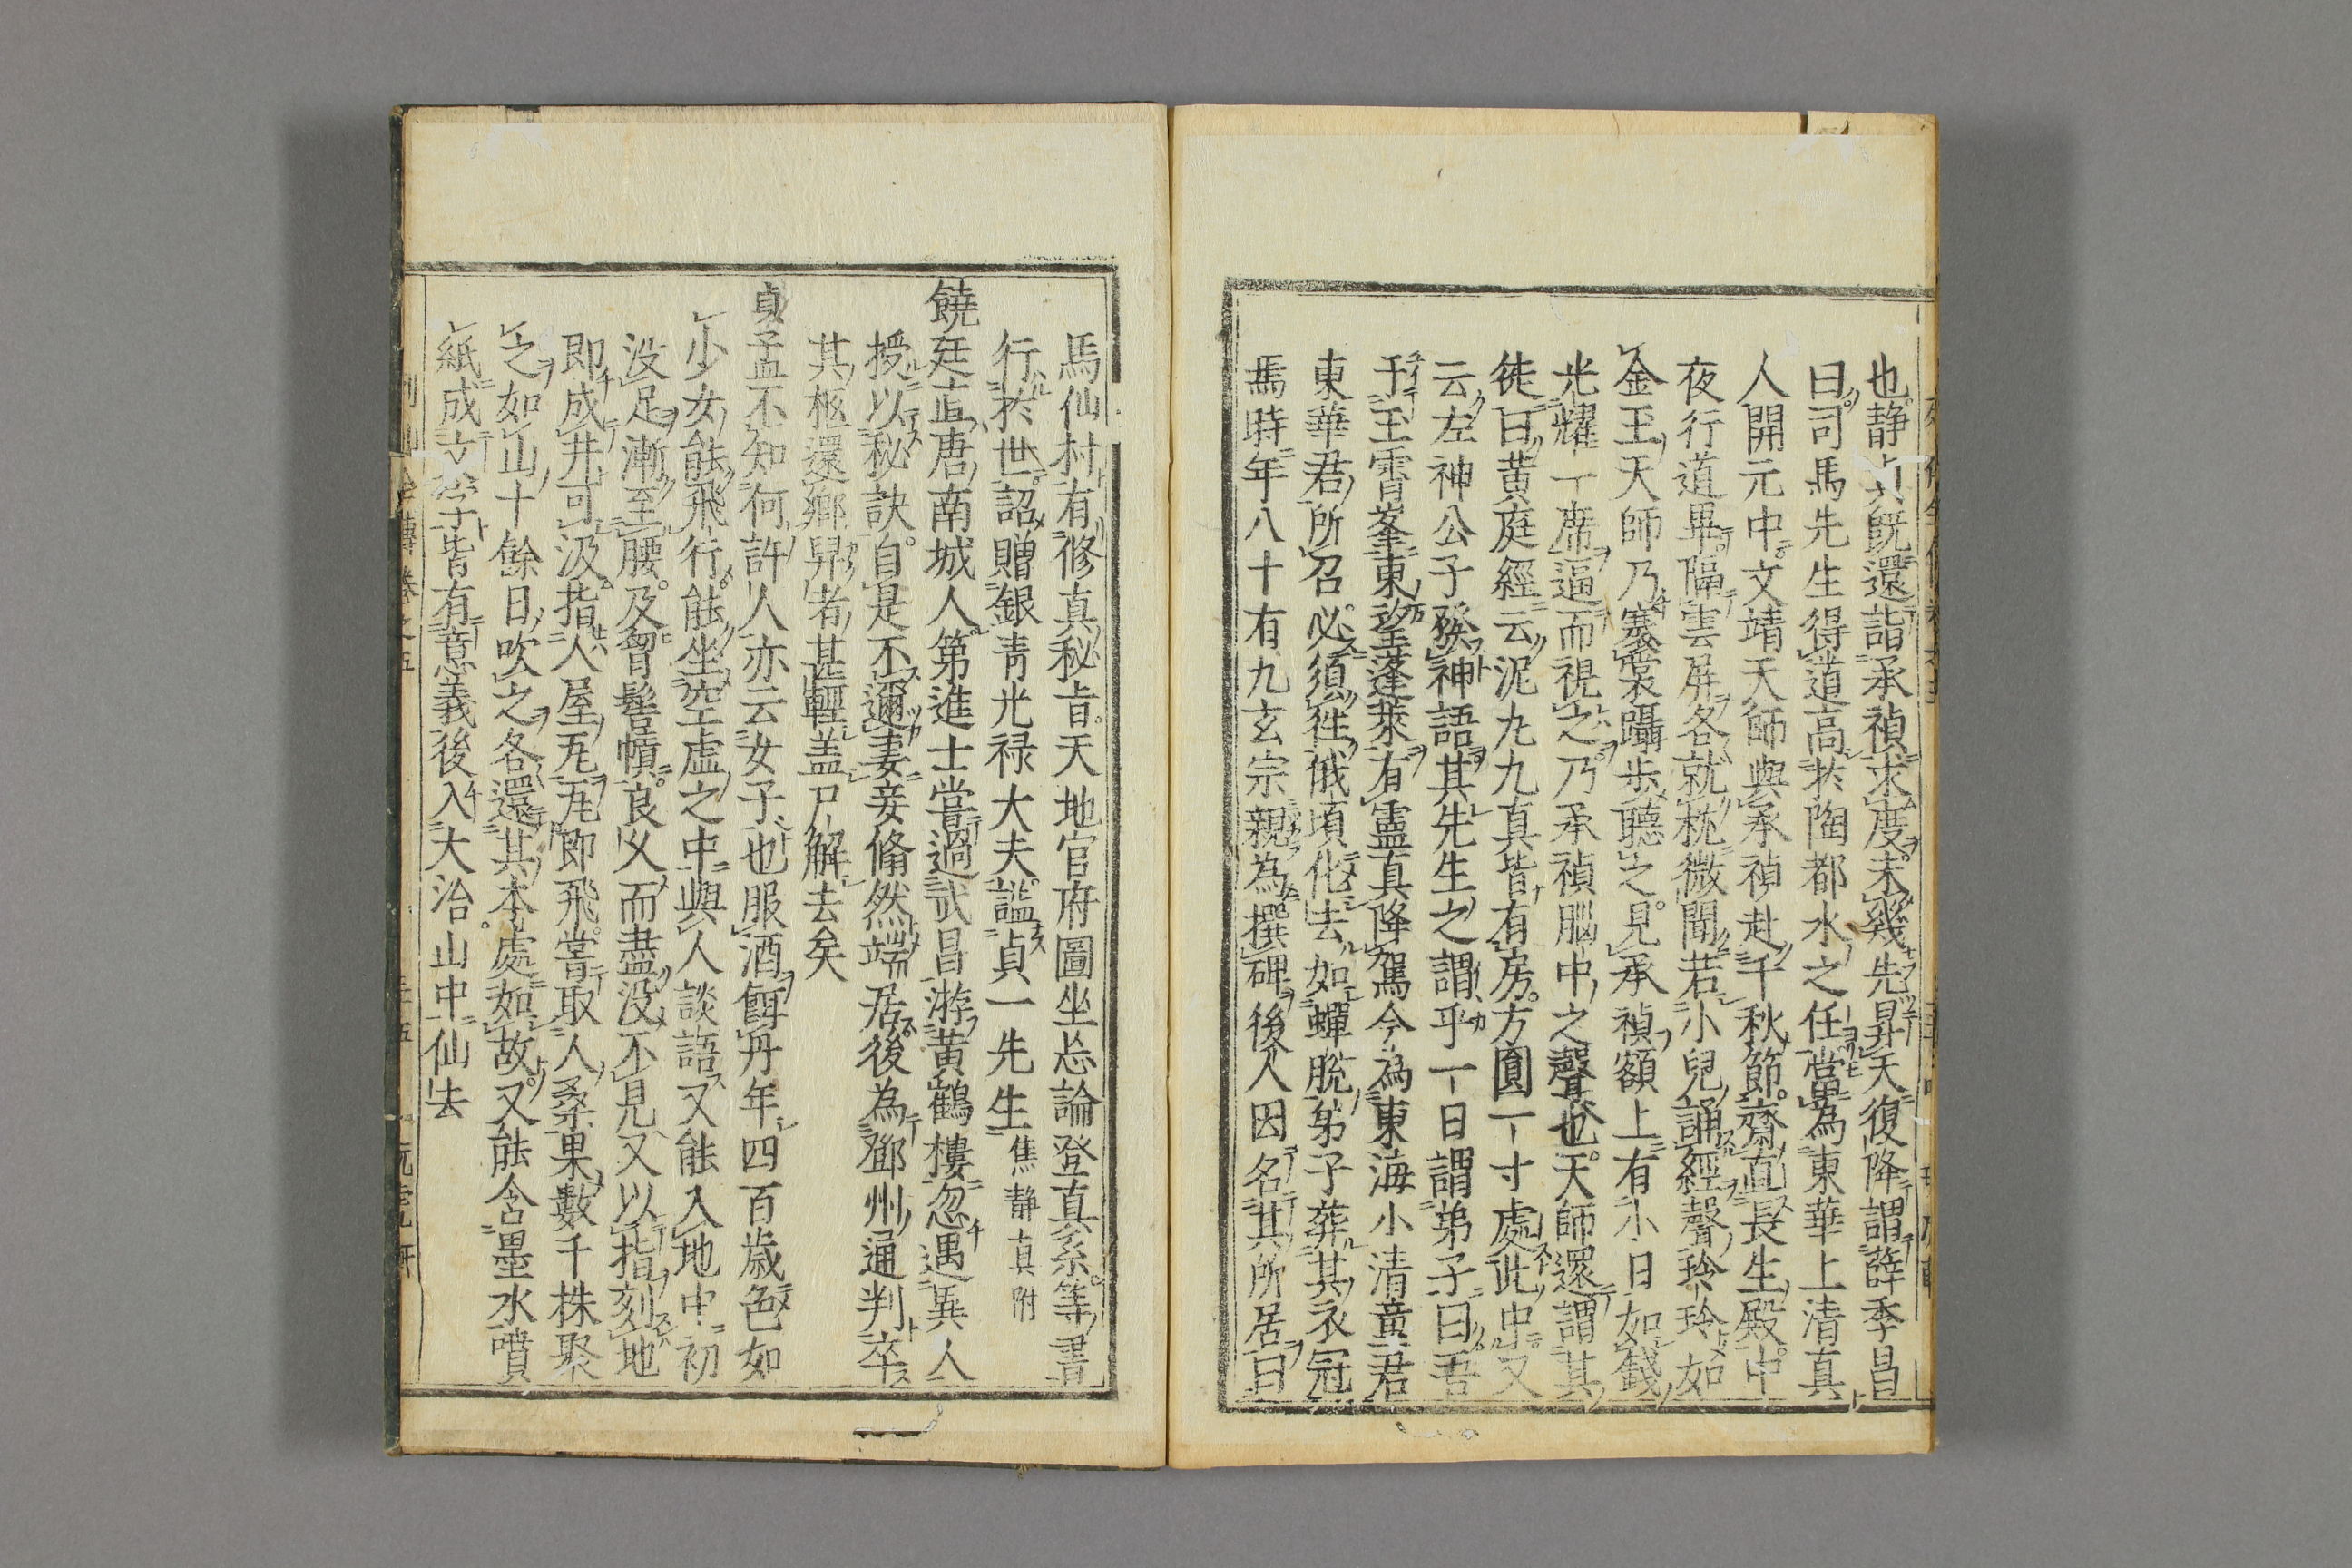 也静真既還詣承禎求度未幾先昇天復降謂薛季昌
曰司馬先生得道高於陶都水之任當為東華上清真
人開元中文靖天師與承禎赴千秋節齋直長生殿中
夜行道畢隔雲屏各就枕微聞若小兒誦經聲玲玲如
金玉天師乃褰裳躡步聽之見承禎額上有小日如錢
光耀一席逼而視之乃承禎腦中之聲也天師還謂其
徒曰黄庭經云泥丸九真皆有房方圓一寸處此中又
云左神公子發神語其先生之謂乎一日謂弟子曰吾
于玉霄峯東望蓬萊有靈真降駕今為東海小清童君
東華君所召必須往俄頃化去如蟬脱弟子葬其衣冠
焉時年八十有九玄宗親為撰碑後人因名其所居曰
馬仙村有修真秘旨天地官府圖坐忘論登真系等書
行於世詔贈銀青光禄大夫謚貞一先生焦静真附
饒廷直唐南城人第進士嘗過武昌游黄鶴樓忽遇異人
授以秘訣自是不邇妻妾翛然端居後為鄧州通判卒
其柩還鄉舁者甚輕盖尸解去矣
貞子孟不知何許人亦云女子也服酒餌丹年四百歳色如
少女能飛行能坐空虚之中與人談語又能入地中初
没足漸至腰及胷髻幘良乆而盡没不見又以指刻地
即成井可汲指人屋瓦瓦即飛嘗取人桑果數千株聚
之如山十餘日吹之各還其本處如故又能含墨水噴
紙成文字皆有意義後入大治山中仙去
傳卷之五